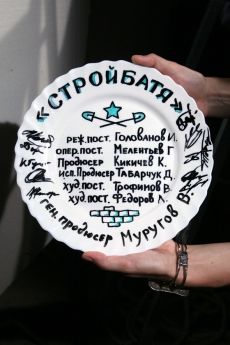 «СТРОЙБАТЯ»
реж.пост. Голованов И.
опер.пост. Мелентьев Г.
Продюсер Кикичев К.
исп.Продюсер Табарчук Д.
худ.пост. Трофимов В.
худ.пост. Федоров Л.
ген.продюсер Муругов В.